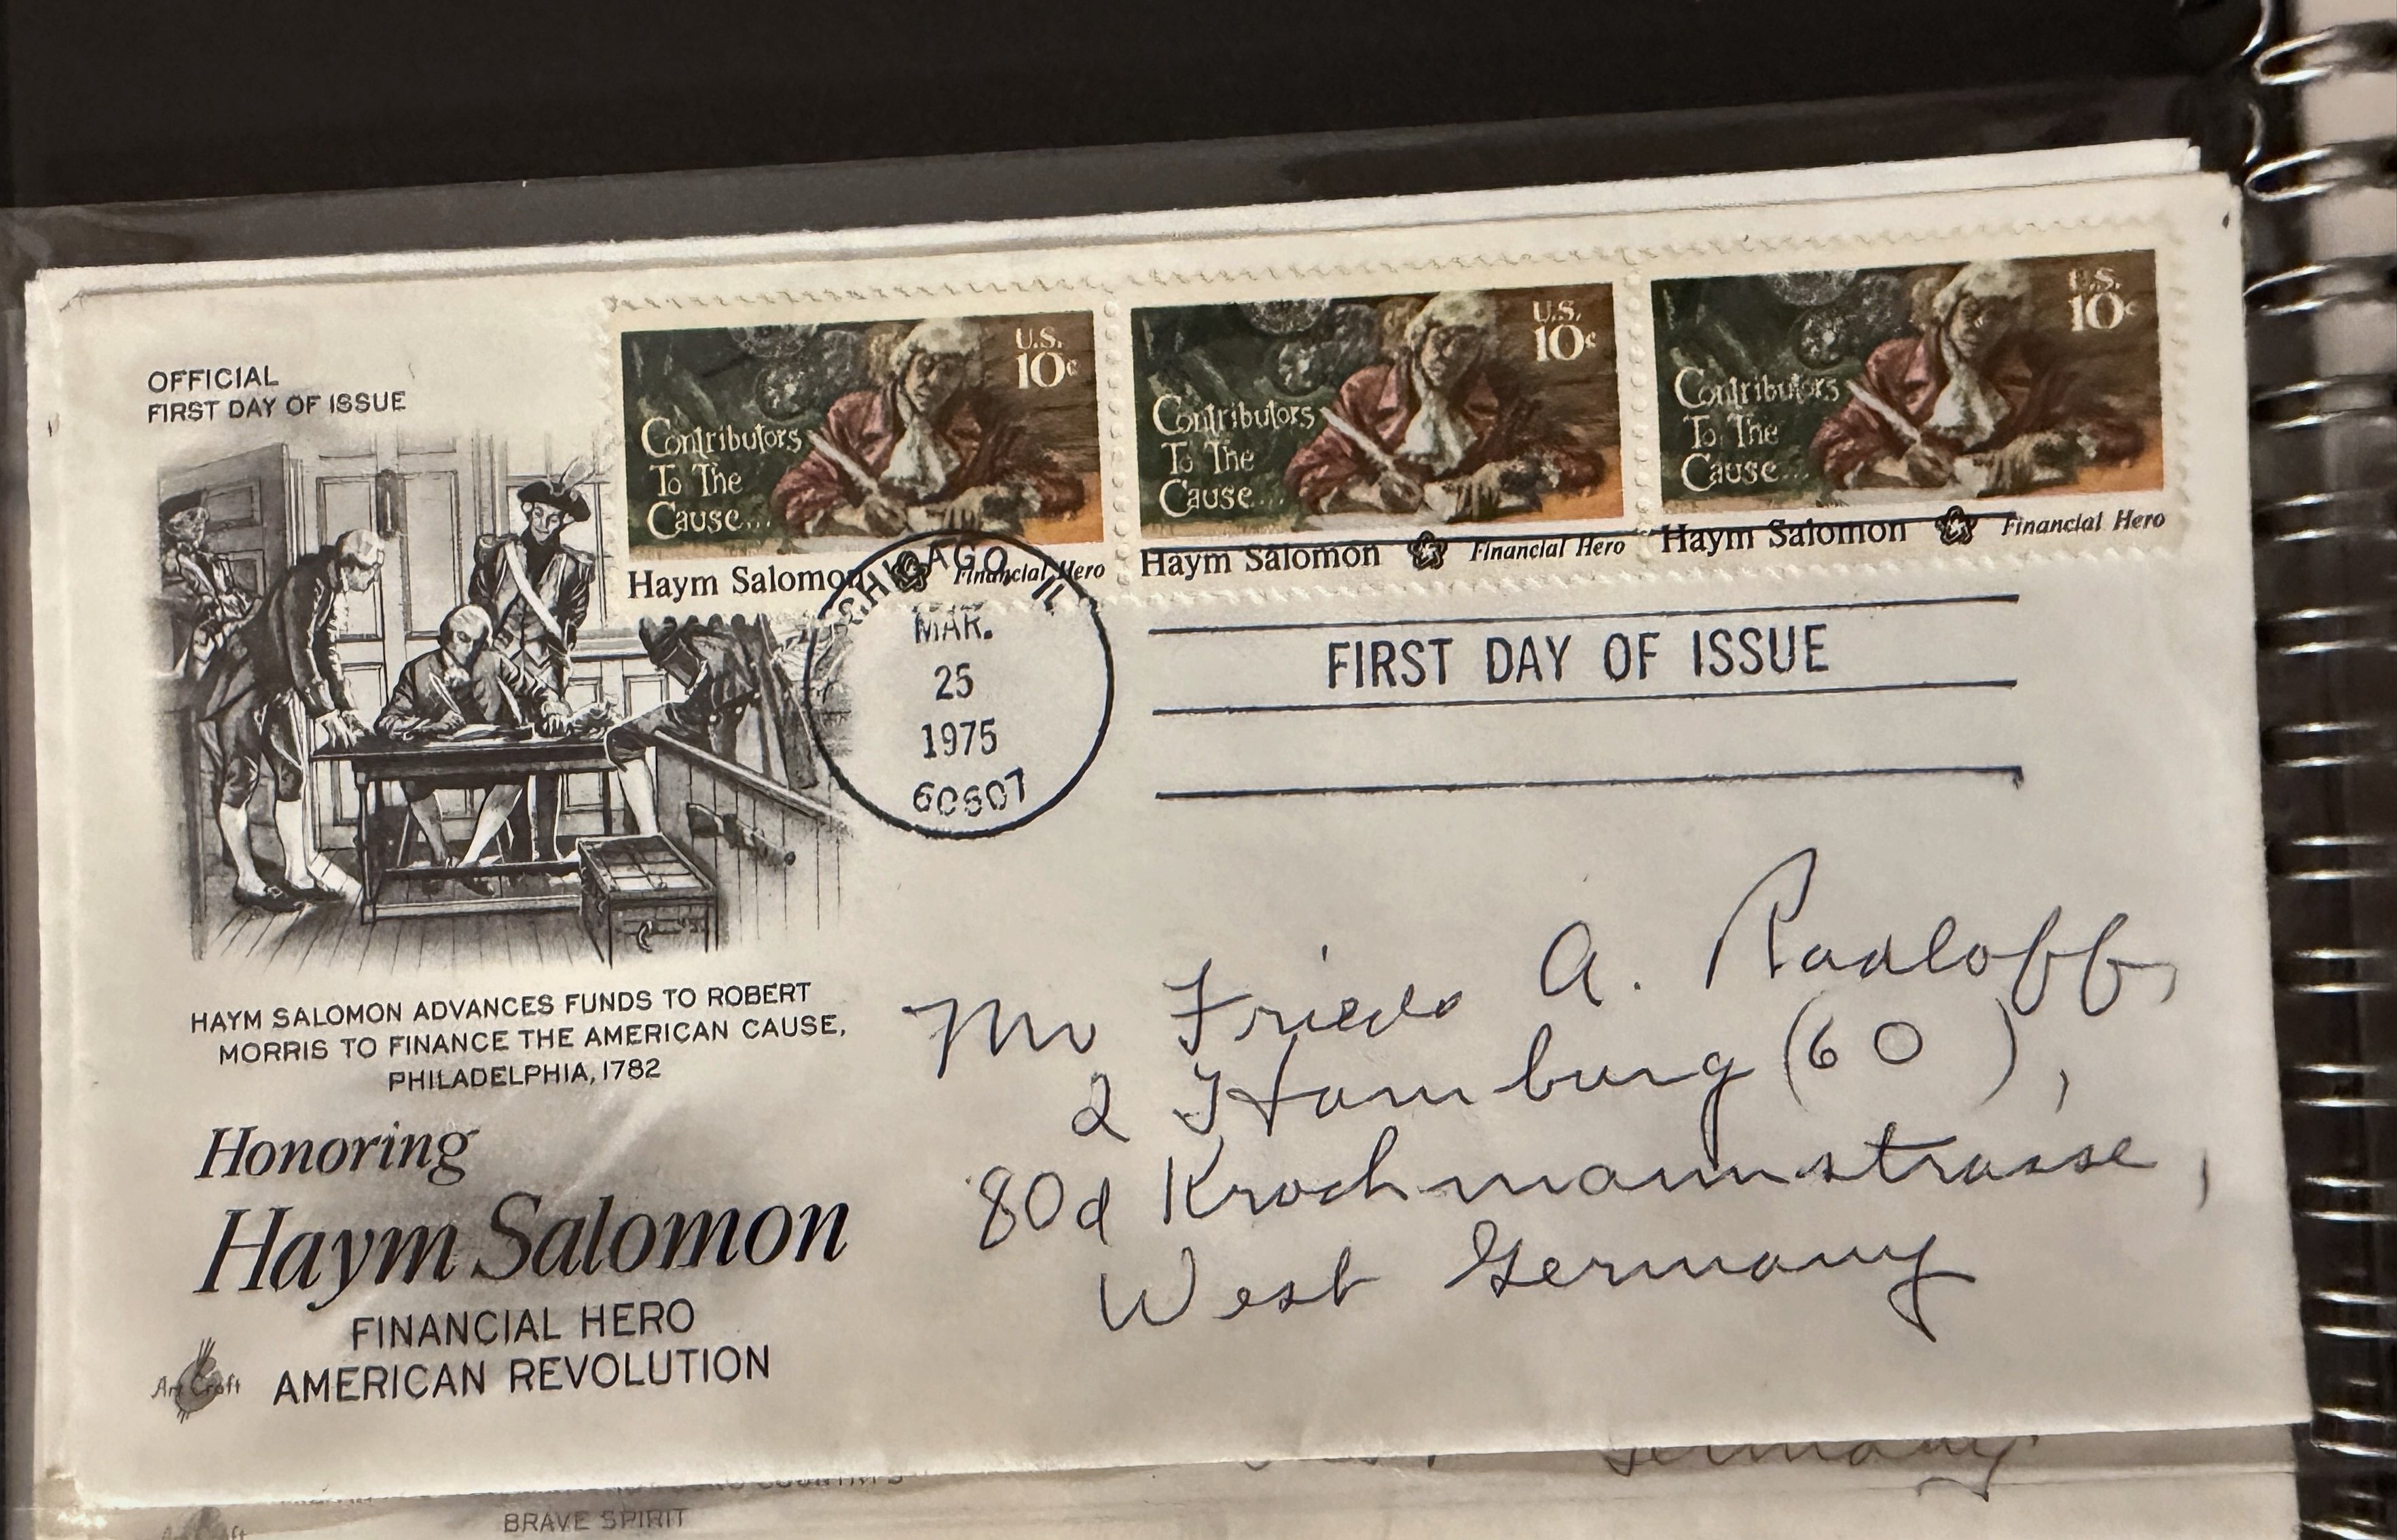 OFFICIAL
FIRST DAY OF ISSUE
U.S.
10c
Contributors
To The
Cause...
Haym Salomon Financial Hero
U.S.
10c
Contributors
To The
Cause...
Haym Salomon Financial Hero
U.S.
10c
Contributors
To The
Cause...
Haym Salomon Financial Hero
CHICAGO, IL
MAR.
25
1975
60607
FIRST DAY OF ISSUE
HAYM SALOMON ADVANCES FUNDS TO ROBERT
MORRIS TO FINANCE THE AMERICAN CAUSE,
PHILADELPHIA, 1782
Honoring
Haym Salomon
FINANCIAL HERO
AMERICAN REVOLUTION
Art Craft
Mr Friedo A. Radloff,
2 Hamburg (60),
80d Krochmannstrasse,
West Germany
Germany
BRAVE SPIRIT
Art Craft